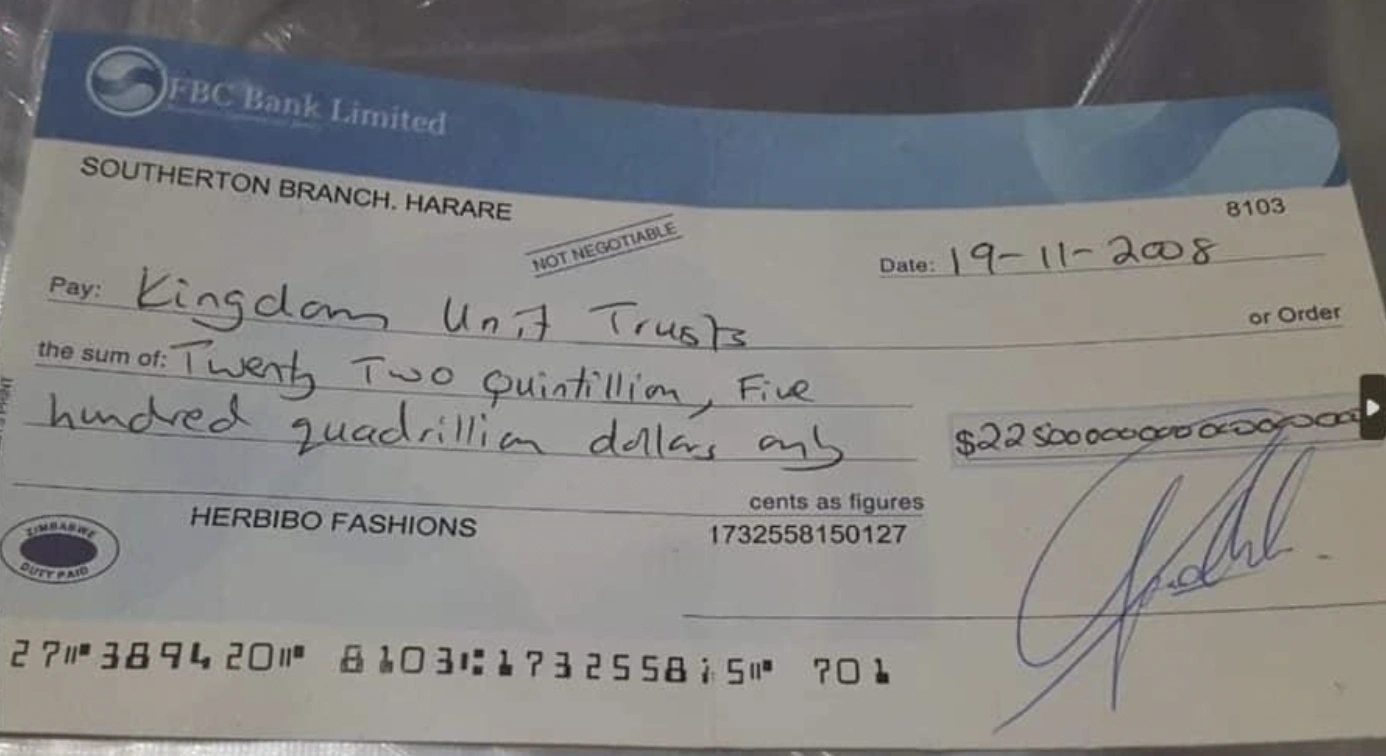 FBC Bank Limited
SOUTHERTON BRANCH. HARARE
8103
NOT NEGOTIABLE
Date: 19-11-2008
Pay: Kingdom Unit Trusts
or Order
the sum of: Twenty Two Quintillion, Five
hundred quadrillion dollars only
cents as figures
HERBIBO FASHIONS
1732558150127
ZIMBABWE
DUTY PAID
27 389420 8103 173255815 701